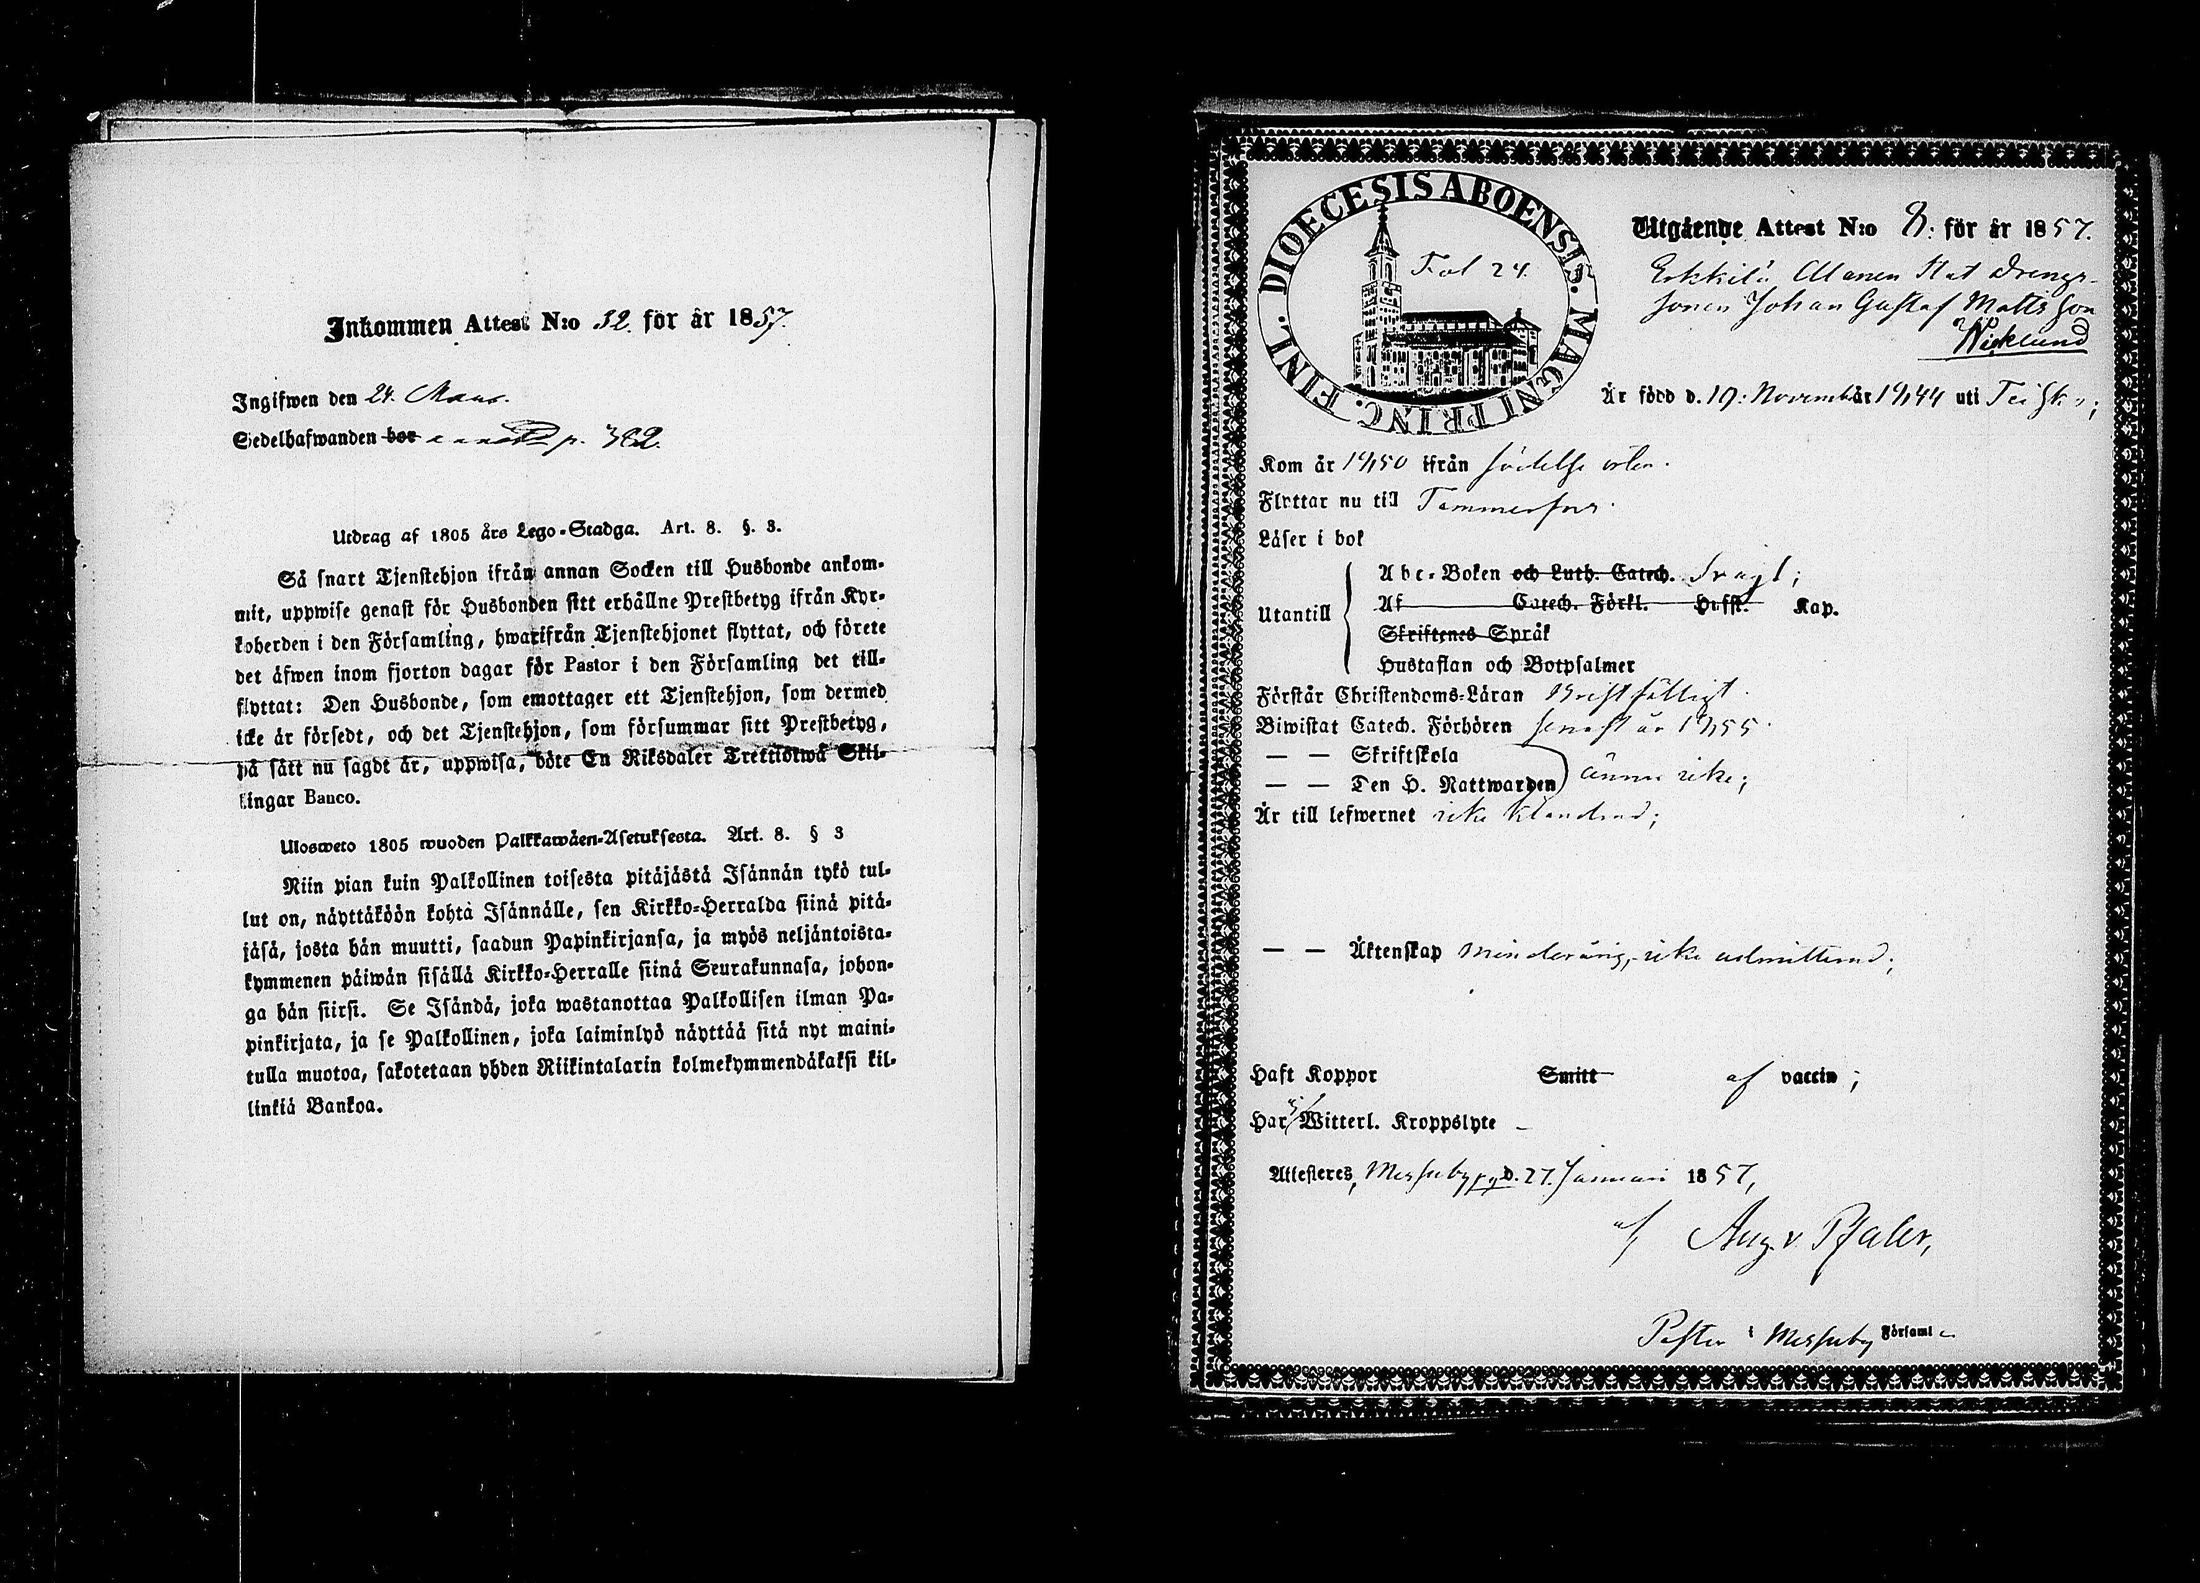 Inkommen Attest N:o 32. för år 1857.
Ingifwen den 24. Mars.
Sedelhafwanden bor p. 382.
Utdrag af 1805 års Lego-Stadga. Art. 8. §. 3.
Så snart Tjenstehjon ifrån annan Socken till Husbonde ankom-
mit, uppwise genast för Husbonden sitt erhållne Prestbetyg ifrån Kyr-
koherden i den Församling, hwarifrån Tjenstehjonet flyttat, och förete
det äfwen inom fjorton dagar för Pastor i den Församling det till-
flyttat: Den Husbonde, som emottager ett Tjenstehjon, som dermed
icke är försedt, och det Tjenstehjon, som försummar sitt Prestbetyg,
på sätt nu sagdt är, uppwisa, böte En Riksdaler Trettiotwå Skil-
lingar Banco.
Ulosweto 1805 wuoden Palkkawäen-Asetuksesta. Art. 8. § 3
Niin pian kuin Palkollinen toisesta pitäjästä Isännän tykö tul-
lut on, näyttäköön kohta Isännälle, sen Kirkko-Herralda siinä pitä-
jäsä, josta hän muutti, saadun Papinkirjansa, ja myös neljäntoista-
kymmenen päiwän sisällä Kirkko-Herralle siinä Seurakunnasa, johon-
ga hän siirsi. Se Isändä, joka wastanottaa Palkollisen ilman Pa-
pinkirjata, ja se Palkollinen, joka laiminlyö näyttää sitä nyt maini-
tulla muotoa, sakotetaan yhden Riikintalarin kolmekymmendäkaksi kil-
linkiä Bankoa.
DIOECESIS ABOENSIS. MAGNI PRINC. FINL.
Fol 24.
Utgående Attest N:o 8: för år 1857.
Erkkilä Manen Stat drengs-
sonen Johan Gustaf Matts son
Wicklund
Är född d. 19: Novemb är 1844 uti Teisko;
Kom år 1850 ifrån födelse orten.
Flyttar nu till Tammerfors.
Läser i bok
Utantill
Abc-Boken och Luth. Catech. Svagt;
Af Catech. Förkl. Hufst. Kap.
Skriftenes Språk
Hustaflan och Botpsalmer
Förstår Christendoms-Läran Bristfälligt.
Biwistat Catech. Förhören senast år 1855.
— — Skriftskola
— — Den H. Nattwarden ännu icke;
Är till lefwernet icke klandrad;
— — Äktenskap minderårig, icke admitterad;
Haft Koppor Smitt af vaccin;
Har ej Witterl. Kroppslyte –
Attesteres, Messuby pgd. 27. Januari 1857,
af Aug. v Pfaler,
Pastor i Messuby Församl